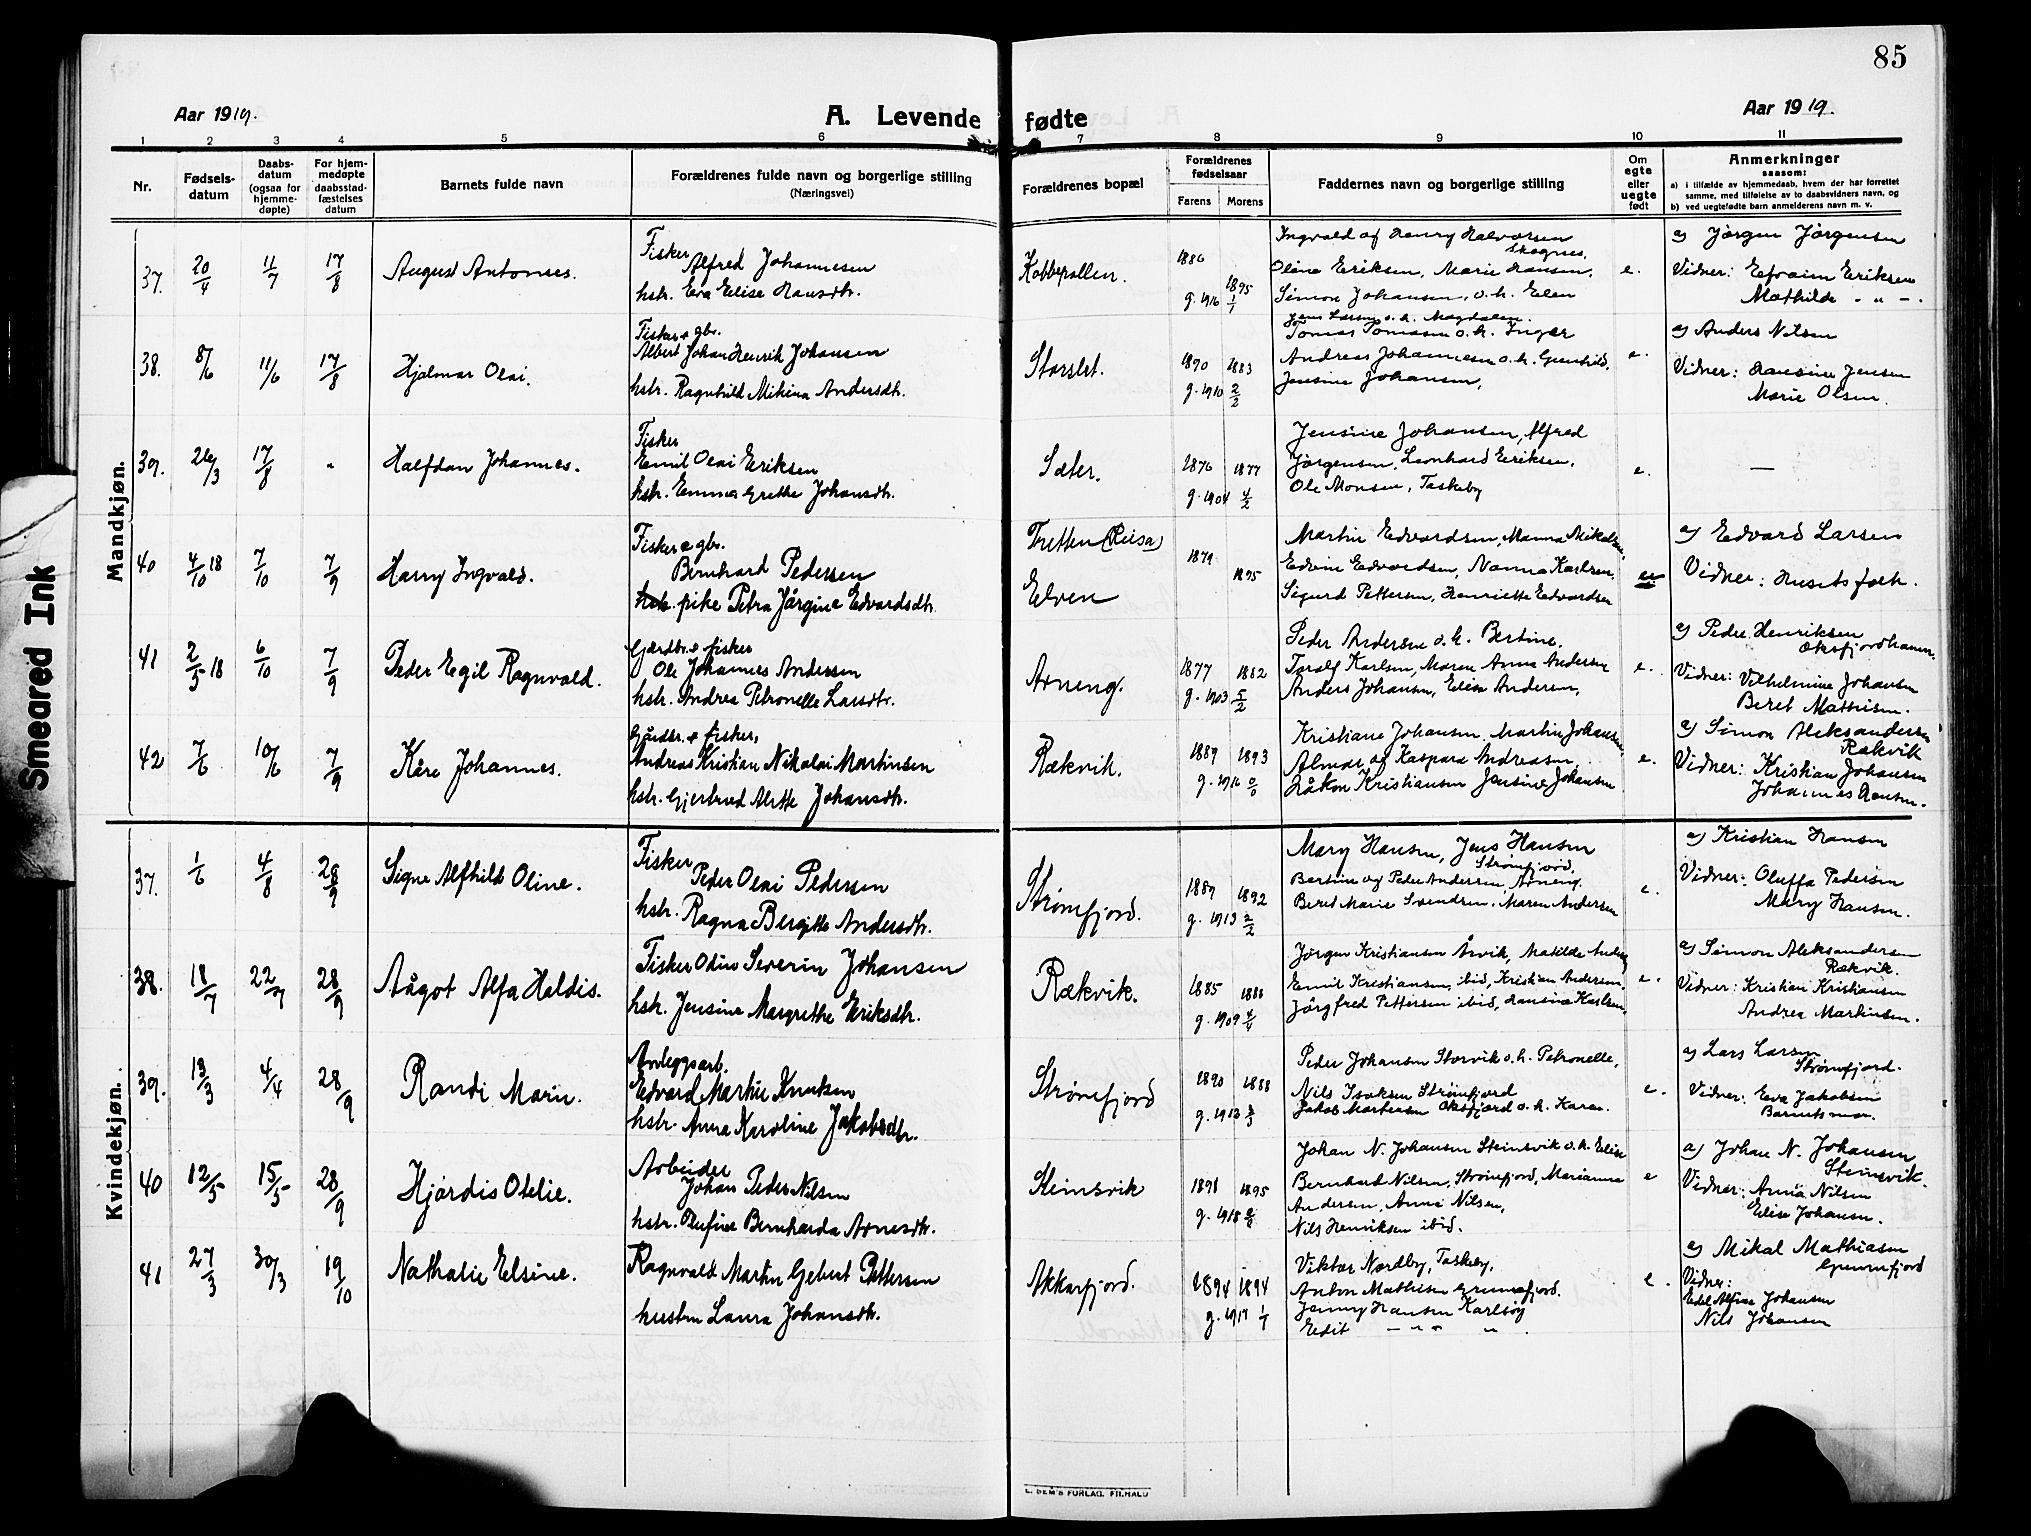 85
Aar 1919.
A. Levende fødte
Aar 1919.
1 2 3 4 5 6 7 8 9 10 11
Nr.
Fødsels-
datum
Daabs-
datum
(ogsaa for
hjemme-
døpte)
For hjem-
medøpte
daabsstad-
fæstelses
datum
Barnets fulde navn
Forældrenes fulde navn og borgerlige stilling
(Næringsvei)
Forældrenes bopæl
Forældrenes
fødselsaar
Farens Morens
Faddernes navn og borgerlige stilling
Om
egte
eller
uegte
født
Anmerkninger
saasom:
a) i tilfælde av hjemmedaab, hvem der har forrettet
samme, med tilføielse av to daabsvidners navn, og
b) ved uegtefødte barn anmelderens navn m. v.
Mandkjøn.
37. 20/4 11/7 17/8 August Antonses.
Fisker
Alfred Johannesen
hstr. Eva Elise Hansdtr.
Kobbepollen.
1886 1895
g. 1916 1/1
Ingvald og Henry Halvorsen
Skognes,
Oline Eriksen, Marie Hansen,
Simon Johansen, o.h. Elen
e.
a) Jørgen Jørgensen
Vidner: Efraim Eriksen
Mathilde - " -.
38. 8/6 11/6 17/8 Hjalmar Olai.
Fisker + gbr.
Albert Johan Henrik Johansen
hstr. Ragnhild Mikina Andersdtr.
Storslet.
1890 1883
g. 1910 2/2
Jens Larsen o.h. Magdalen.
Tomas Tomasen o.h. Inger
Andreas Johannesen o.h. Gunhild,
Jensine Johansen,
e.
a) Anders Nilsen
Vidner: Hansine Jensen
Marie Olsen.
39. 26/3 17/8 " Halfdan Johannes.
Fisker
Emil Olai Eriksen
hstr. Emma Grethe Johansdtr.
Sæter.
1876 1877
g. 1904 4/2
Jensine Johansen, Alfred
Jørgensen, Leonhard Eriksen,
Ole Monsen, Taskeby
e.
—
40 4/10 18 7/10 7/9 Harry Ingvald.
Fisker e gbr.
Bernhard Pedersen
hstr. pike Petra Jørgine Edvardsdtr.
Tretten (Reisa)
Elven
1879 1895
Martin Edvardsen, Manna Mikalsen,
Edvin Edvardsen, Nanna Karlsen,
Sigurd Pettersen, Henriette Edvardsen
a) Edvard Larsen
Vidner: Husets folk.
41 2/5 18 6/10 7/9 Peder Egil Ragnvald.
Gardbr. + fisker
Ole Johannes Andersen
hstr. Andrea Petronelle Larsdtr.
Arneng.
1877 1882
g. 1903 5/2
Peder Andersen o.h. Bertine.
Toralf Karlsen, Maren Anna Andersen
Anders Johansen, Elise Andersen,
e.
a) Peder Henriksen
Oksfjordhamn.
Vidner: Vilhelmine Johansen
Beret Mathisen.
42 7/6 10/6 7/9 Kåre Johannes.
Gårdbr. + fisker,
Andreas Kristian Nikolai Martinsen
hstr. Gjertrud Alette Johansdtr.
Rækvik.
1889 1893
g. 1916 0/0
Kristiane Johansen, Martin Johansen
Almar og Kaspara Andreasen,
Håkon Kristiansen Jensine Johansen
e.
a) Simon Aleksandersen
Rækvik
Vidner: Kristian Johansen
Johannes Hansen.
Kvindekjøn.
37. 1/6 4/8 28/9 Signe Alfhild Oline.
Fisker
Peder Olai Pedersen
hstr. Ragna Bergitte Andersdtr.
Strømfjord.
1889 1892
g. 1913 2/2
Mary Hansen, Jens Hansen
Strømfjord,
Bertine og Peder Andersen, Arneng.
Beret Marie Svendsen, Maren Andersen
e.
a) Kristian Hansen
Vidner: Oluffa Pedersen
Mary Hansen.
38. 18/7 22/7 28/9 Aågot Alfa Haldis.
Fisker Odin Severin Johansen
hstr. Jensine Margrethe Eriksdtr.
Rækvik.
1885 1888
g. 1909 4/4
Jørgen Kristiansen Årvik, Matilde
Emil Kristiansen, ibid, Kristian Andersen,
Jørgfred Pettersen ibid, Hansine Karlsen,
e.
a) Simon Aleksandersen
Rækvik.
Vidner: Kristian Kristiansen
Andrea Martinsen.
39. 13/3 4/4 28/9 Randi Marie.
Anleggsarb.
Edvard Martin Knutsen
hstr. Anna Karoline Jakobsdtr.
Strømfjord
1890 1888
g. 1913 3/3
Peder Johansen Storvik o.h. Petronelle,
Nils Isaksen Strømfjord
Jakob Martinsen Oksfjord o.h. Karen.
e.
a) Lars Larsen
Strømfjord.
Vidner: Eva Jakobsen
Barnets mor.
40 12/5 15/5 28/9 Hjørdis Otelie.
Arbeider
Johan Peder Nilsen
hstr. Olufine Bernharda Arnesdtr.
Steinsvik
1891 1895
g. 1918
Johan N. Johansen Steinsvik o.h. Elise
Bernhard Nilsen, Strømfjord, Marianna
Andersen, Anna Nilsen,
Nils Henriksen ibid.
e
a) Johan N. Johansen
Steinsvik.
Vidner: Anna Nilsen
Elise Johansen.
41 27/3 30/3 19/10 Nathalie Elsine.
Ragnvald Martin Gebert Pettersen
hustru Laura Johansdtr.
Akkarfjord.
1894 1894
g. 1917 1/1
Viktor Nordby, Taskeby,
Anton Mathisen Grunnfjord.
Jenny Hansen Karlsøy
Edit - " - "
e.
a) Mikal Mathiasen
Grunnfjord
Vidner:
Edel Alfine Johansen
Nils Johansen
Smeared Ink